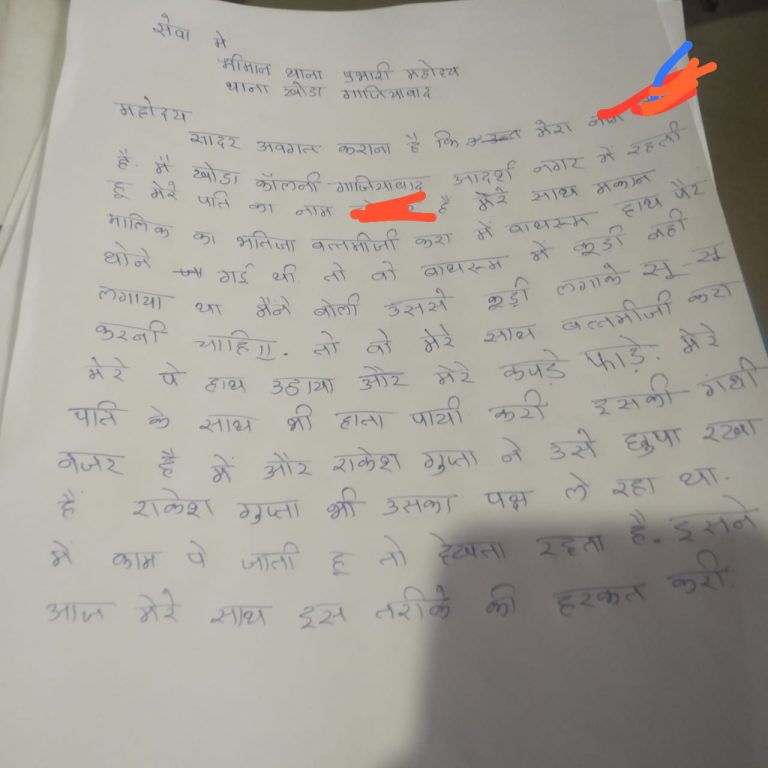 सेवा मे
श्रीमान थाना प्रभारी महोदय
थाना खोडा गाजियाबाद
महोदय
सादर अवगत कराना है कि मेरा नाम
है. मै खोडा कॉलनी गाजियाबाद आदर्श नगर में रहती
हू मेरे पति का नाम है मेरे साथ मकान
मालिक का भतिजा बत्तमीजी करा में वाथरूम हाथ पैर
धोने गई थी तो वो वाथरूम मे कूडी नही
लगाया था मैंने बोली उससे कूड़ी लगाके सू-सू
करनी चाहिए. तो वो मेरे साथ बत्तमीजी करा
मेरे पे हाथ उठाया और मेरे कपड़े फाड़े. मेरे
पति के साथ भी हाता पायी करी इसकी गंधी
नजर है में और राकेश गुप्ता ने उसे छुपा रखा
हैं राकेश गुप्ता भी उसका पक्ष ले रहा था.
मे काम पे जाती हू तो देखता रहता है. इसने
आज मेरे साथ इस तरीके की हरकत करी.